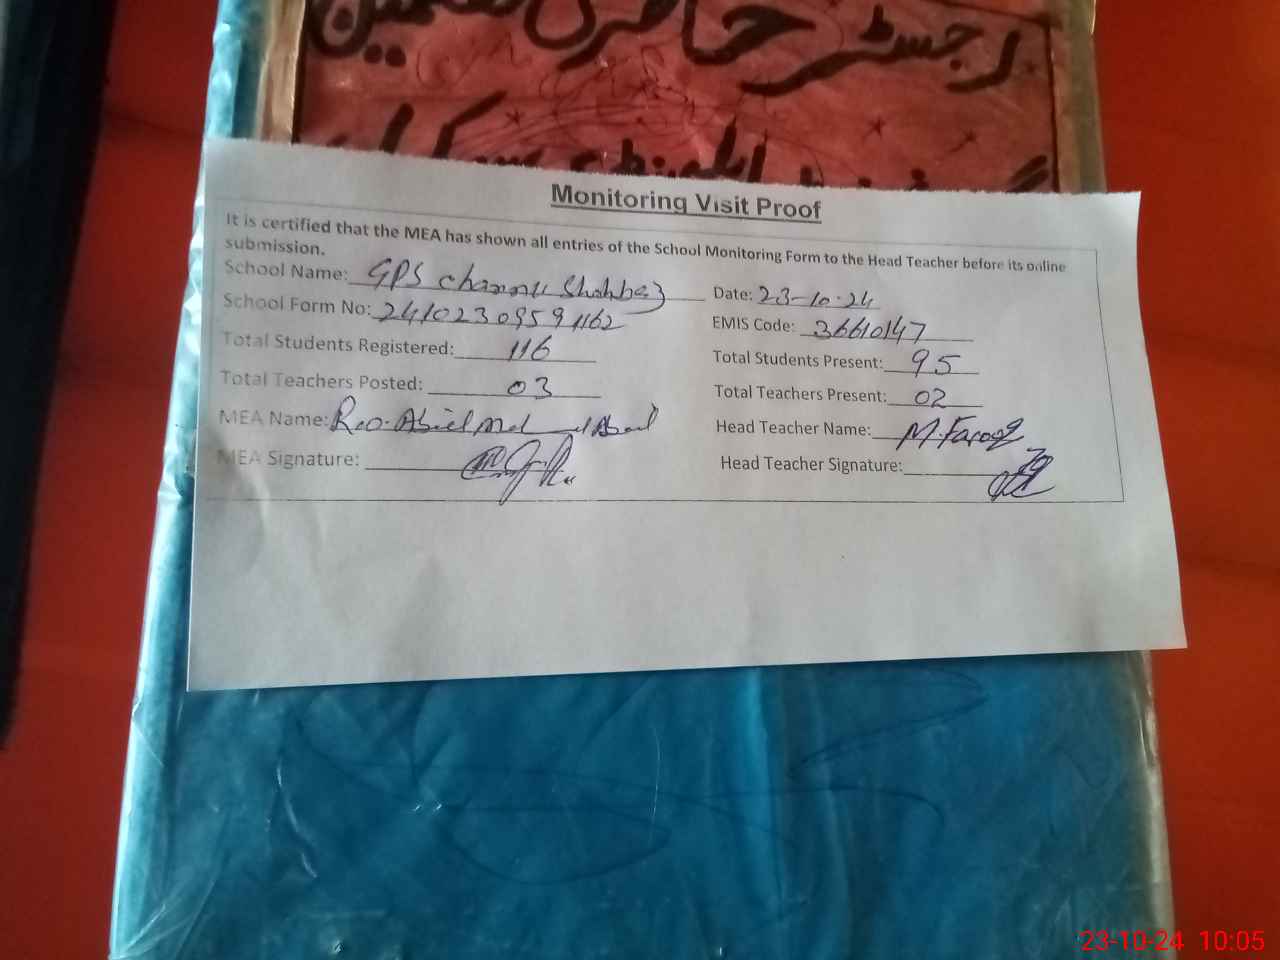 رجسٹر حاضری معلمین
Monitoring Visit Proof
It is certified that the MEA has shown all entries of the School Monitoring Form to the Head Teacher before its online
submission.
School Name: GPS channu Shahbaz Date: 23-10-24
School Form No: 24102309591162 EMIS Code: 36610147
Total Students Registered: 116 Total Students Present: 95
Total Teachers Posted: 03 Total Teachers Present: 02
MEA Name: Rao Head Teacher Name: M. Farooq
MEA Signature: Head Teacher Signature:
23-10-24 10:05